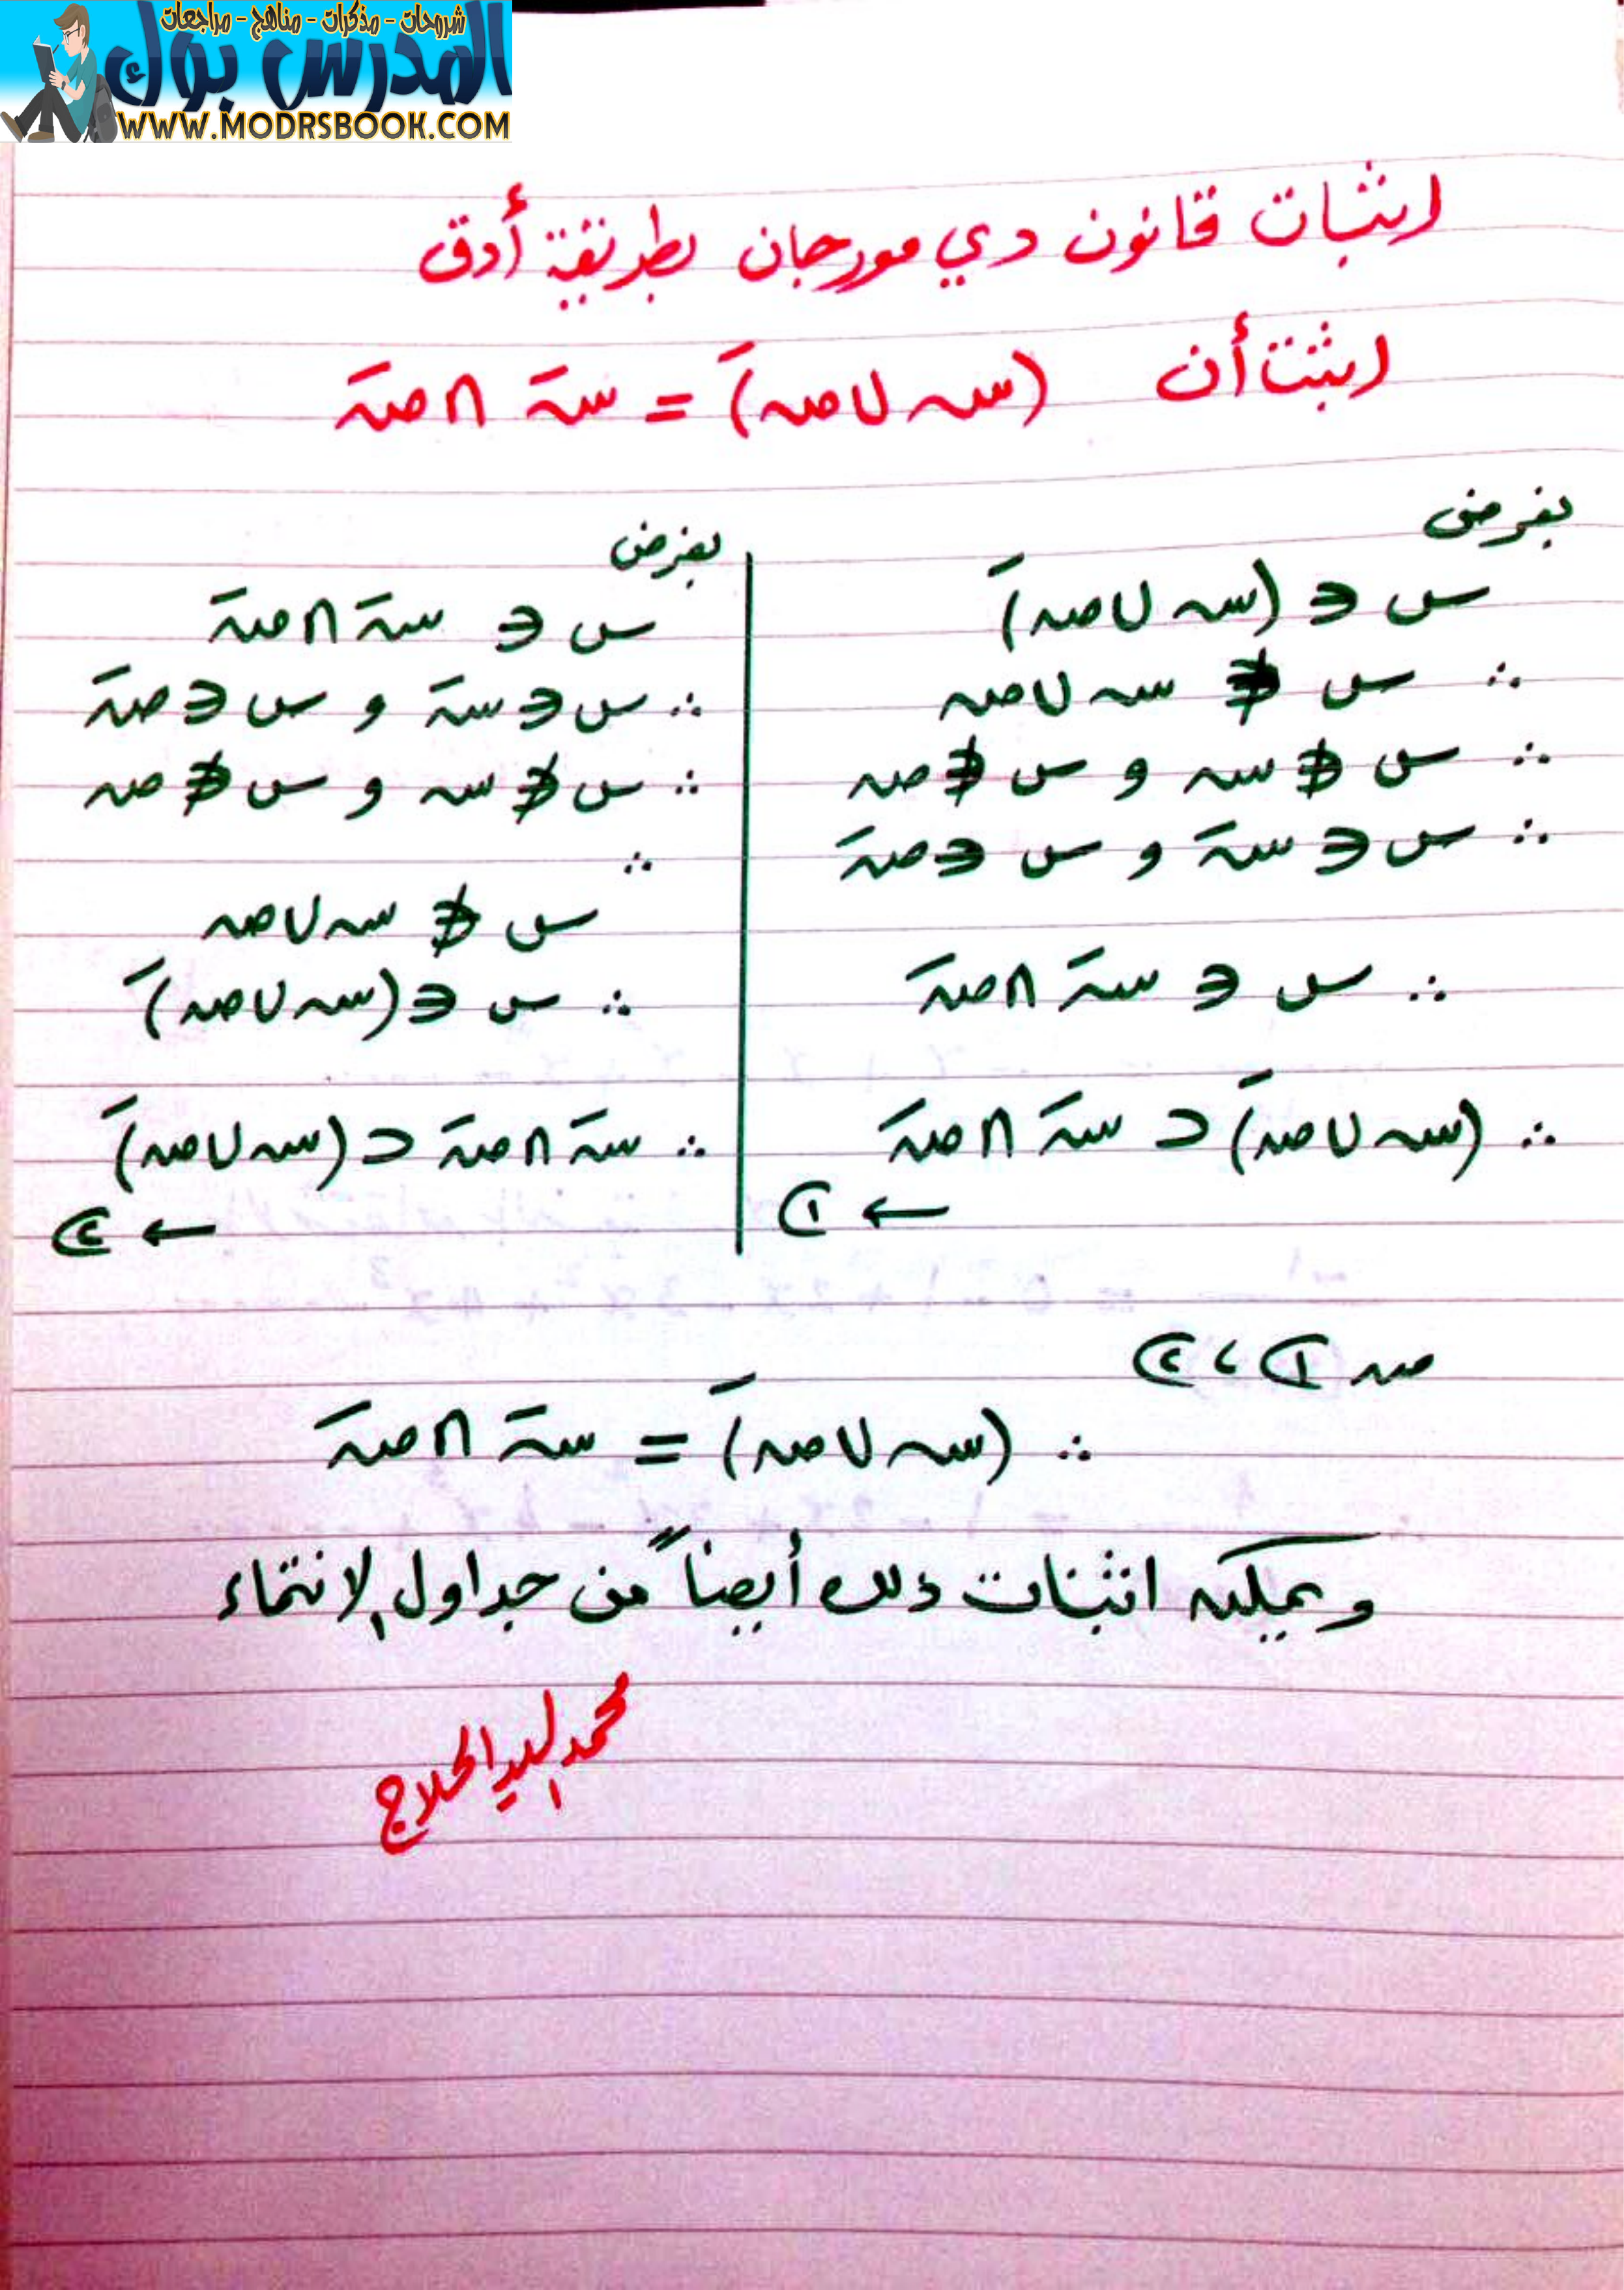 شروحات - مذكرات - مناهج - مراجعات
المدرس بوك
WWW.MODRSBOOK.COM
اثبات قانون دي مورجان بطريقة أدق
اثبت أن (سہ ∪ صہ)َ = سہَ ∩ صہَ
بفرض
س ∈ (سہ ∪ صہ)َ
∴ س ∉ سہ ∪ صہ
∴ س ∉ سہ و س ∉ صہ
∴ س ∈ سہَ و س ∈ صہَ
∴ س ∈ سہَ ∩ صہَ
∴ (سہ ∪ صہ)َ ⊂ سہَ ∩ صہَ
← ①
بفرض
س ∈ سہَ ∩ صہَ
∴ س ∈ سہَ و س ∈ صہَ
∴ س ∉ سہ و س ∉ صہ
∴
س ∉ سہ ∪ صہ
∴ س ∈ (سہ ∪ صہ)َ
∴ سہَ ∩ صہَ ⊂ (سہ ∪ صہ)َ
← ②
من ① ، ②
∴ (سہ ∪ صہ)َ = سہَ ∩ صہَ
ويمكن اثبات ذلك أيضاً من جداول الانتماء
محمد السيد الحلاج